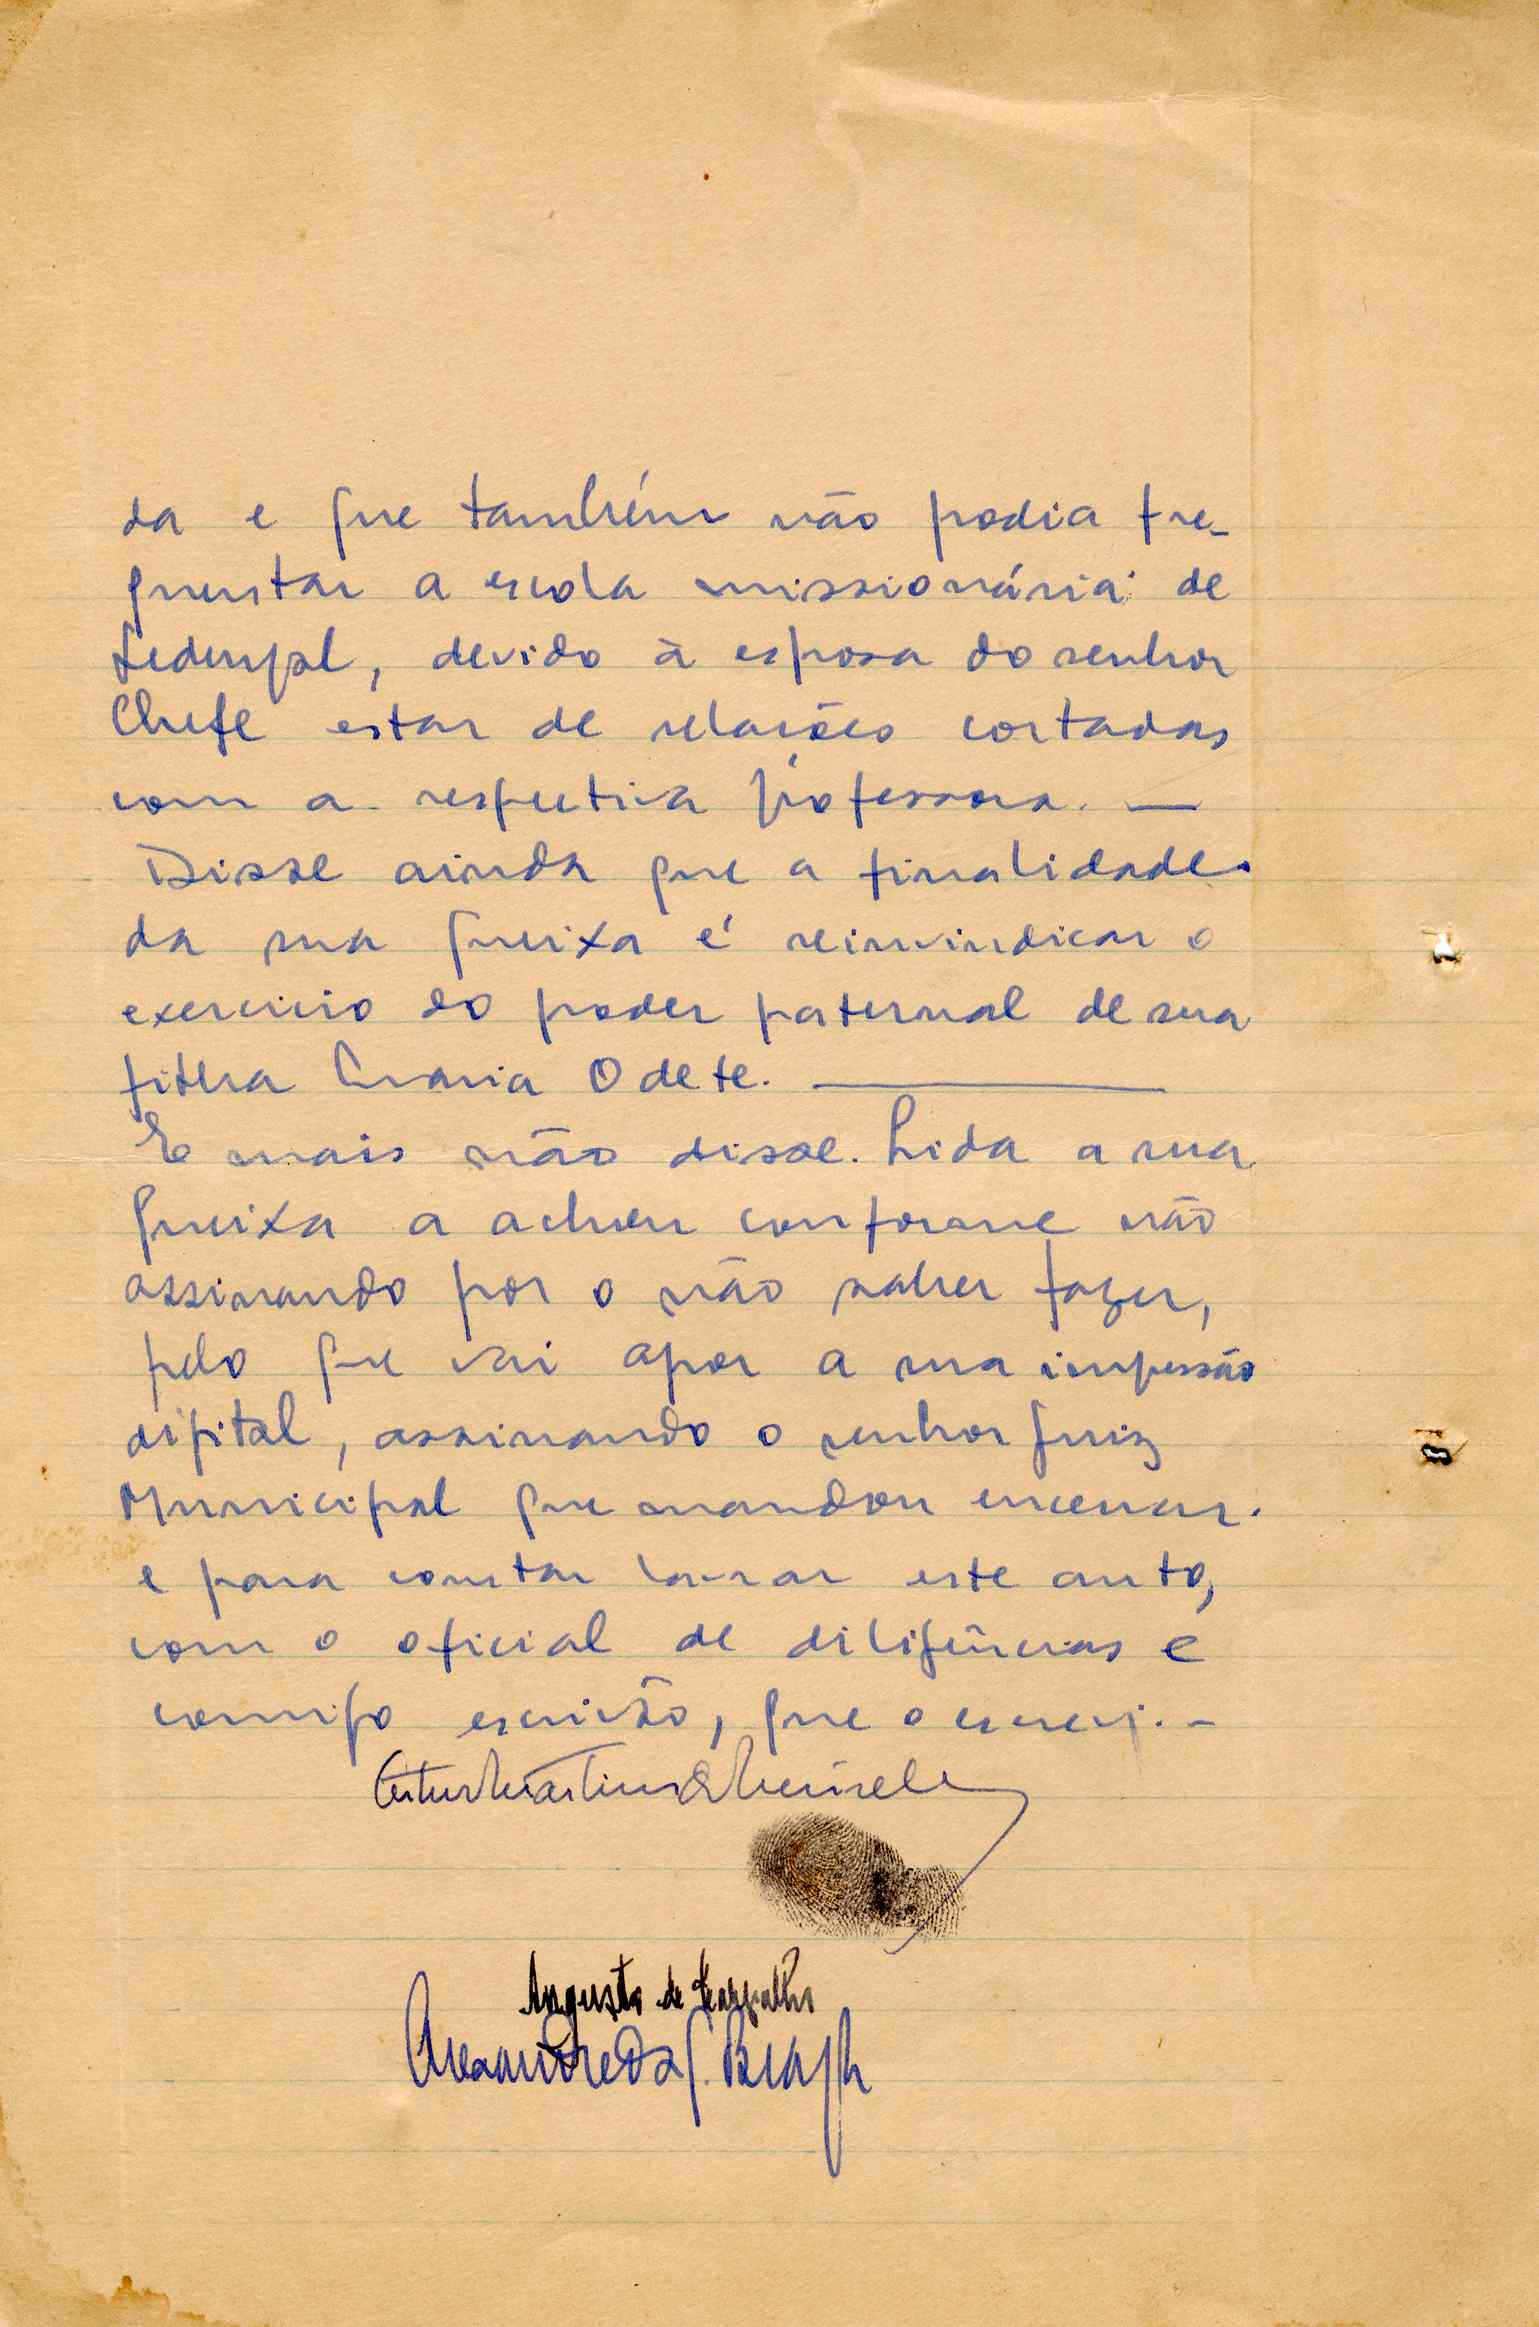 da e que também não podia fre-
quentar a escola missionária de
devido à esposa do senhor
Chefe estar de relações cortadas
com a respectiva professora. —
Disse ainda que a finalidade
da sua queixa é reinvindicar o
exercicio do poder paternal de sua
filha Maria Odete. —
E mais não disse. Lida a sua
queixa a achou conforme não
assinando por o não saber fazer,
pelo que vai apor a sua impressão
digital, assinando o senhor Juiz
Municipal que mandou encerrar.
e para constar lavrar este auto,
com o oficial de diligências e
comigo escrivão, que o escrevi. -
Artur Martins de Meireles
Augusto de Carvalho
Alexandre da